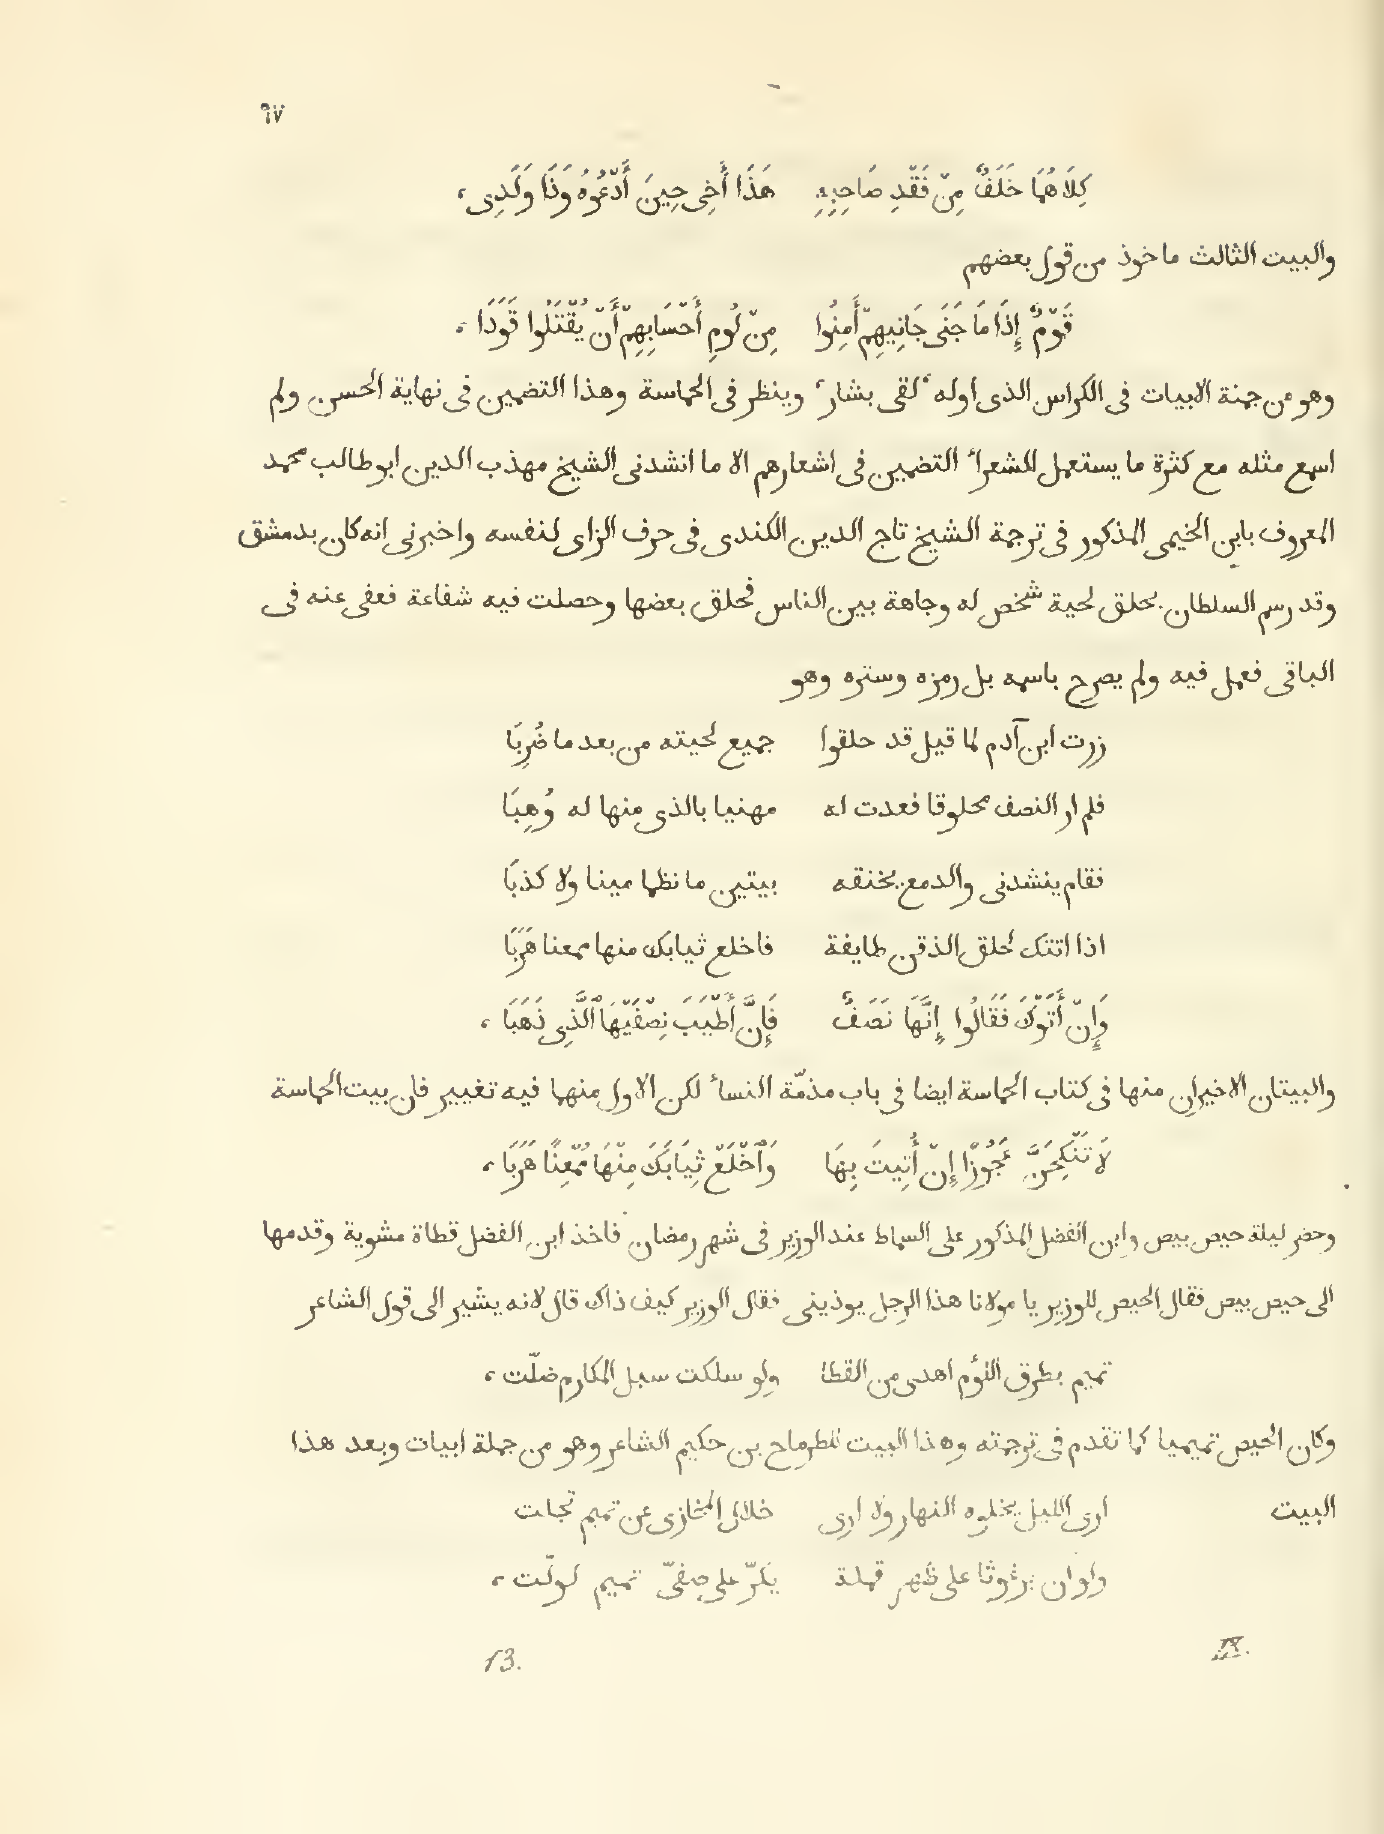 ٩٧
كِلَاهُمَا خَلَفٌ مِنْ فَقْدِ صَاحِبِهِ هَذَا أَخِى حِينَ أَدْعُوهُ وَذَا وَلَدِى،
والبيت الثالث ماخوذ من قول بعضهم
قَوْمٌ إِذَا مَا جَنَى جَانِيهِمْ أَمِنُوا مِنْ لُومِ أَحْسَابِهِمْ أَنْ يُقْتَلُوا قَوَدَا،
وهو من جمنة الابيات فى الكراس الذى اوله ٬لقى بشار٬ وينظر فى الحماسة وهذا التضمين فى نهاية الحسن ولم
اسمع مثله مع كثرة ما يستعمل الشعراء التضمين فى اشعارهم الا ما انشدنى الشيخ مهذب الدين ابو طالب محمد
المعروف بابن الخيمى المذكور فى ترجمة الشيخ تاج الدين الكندى فى حرف الزاى لنفسه واخبرنى انه كان بدمشق
وقد رسم السلطان بحلق لحية شخص له وجاهة بين الناس فحلق بعضها وحصلت فيه شفاعة فعفى عنه فى
الباقى فعمل فيه ولم يصرح باسمه بل رمزه وستره وهو
زرت ابن آدم لما قيل قد حلقوا جميع لحيته من بعد ما ضُرِبَا
فلم ار النصف محلوقا فعدت له مهنيا بالذى منها له وُهِبَا
فقام ينشدنى والدمع يخنقه بيتين ما نظما مينا ولا كذبَا
اذا اتتك لحلق الذقن طايفة فاخلع ثيابك منها ممعنا هَرَبَا
وَإِنْ أَتَوْكَ فَقَالُوا إِنَّهَا نَصَفٌ فَإِنَّ أَطْيَبَ نِصْفَيْهَا ٱلَّذِى ذَهَبَا،
والبيتان الاخيران منها فى كتاب الحماسة ايضا فى باب مذمّة النساء لكن الاول منهما فيه تغيير فان بيت الحماسة
لَا تَنْكِحَنَّ عَجُوزًا إِنْ أُتِيتَ بِهَا وَٱخْلَعْ ثِيَابَكَ مِنْهَا مُمْعِنًا هَرَبَا،
وحضر ليلة حيص بيص وابن الفضل المذكور على السماط عند الوزير فى شهر رمضان فاخذ ابن الفضل قطاة مشوية وقدمها
الى حيص بيص فقال الحيص للوزير يا مولانا هذا الرجل يوذينى فقال الوزير كيف ذاك قال لانه يشير الى قول الشاعر
تميم بطرق اللؤم اهدى من القطا ولو سلكت سبل المكارم ضلّت،
وكان الحيص تميميا كما تقدم فى ترجمته وهذا البيت للطرماح بن حكيم الشاعر وهو من جملة ابيات وبعد هذا
البيت ارى الليل يجلوه النهار ولا ارى خلال المخازى عن تميم تجلت
ولو ان برغوثا على ظهر قملة يكرّ على صفىّ تميم لولّت،
13. IX.